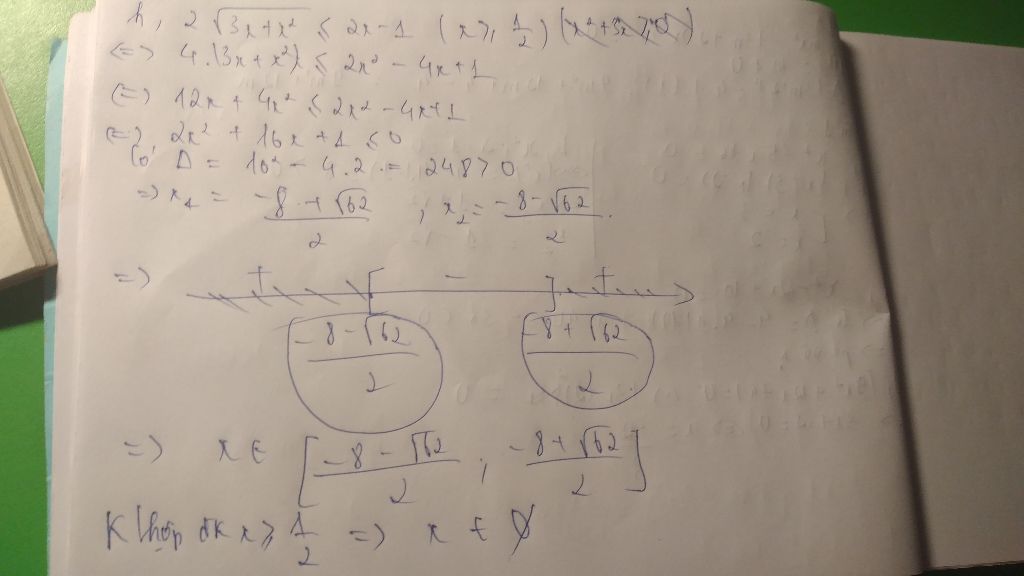 h, 2√(3x+x²) ≤ 2x-1 (x ≥ 1/2)
<=> 4.(3x+x²) ≤ 2x² - 4x+1
<=> 12x + 4x² ≤ 2x² - 4x+1
<=> 2x² + 16x + 1 ≤ 0
Có Δ = 16² - 4.2 = 248 > 0
=> x₁ = (-8 + √62)/2 ; x₂ = (-8-√62)/2.
=> + [ - ] +
(-8-√62)/2 (-8+√62)/2
=> x ∈ [(-8-√62)/2 ; (-8+√62)/2]
K/hợp đk x ≥ 1/2 => x ∈ ∅